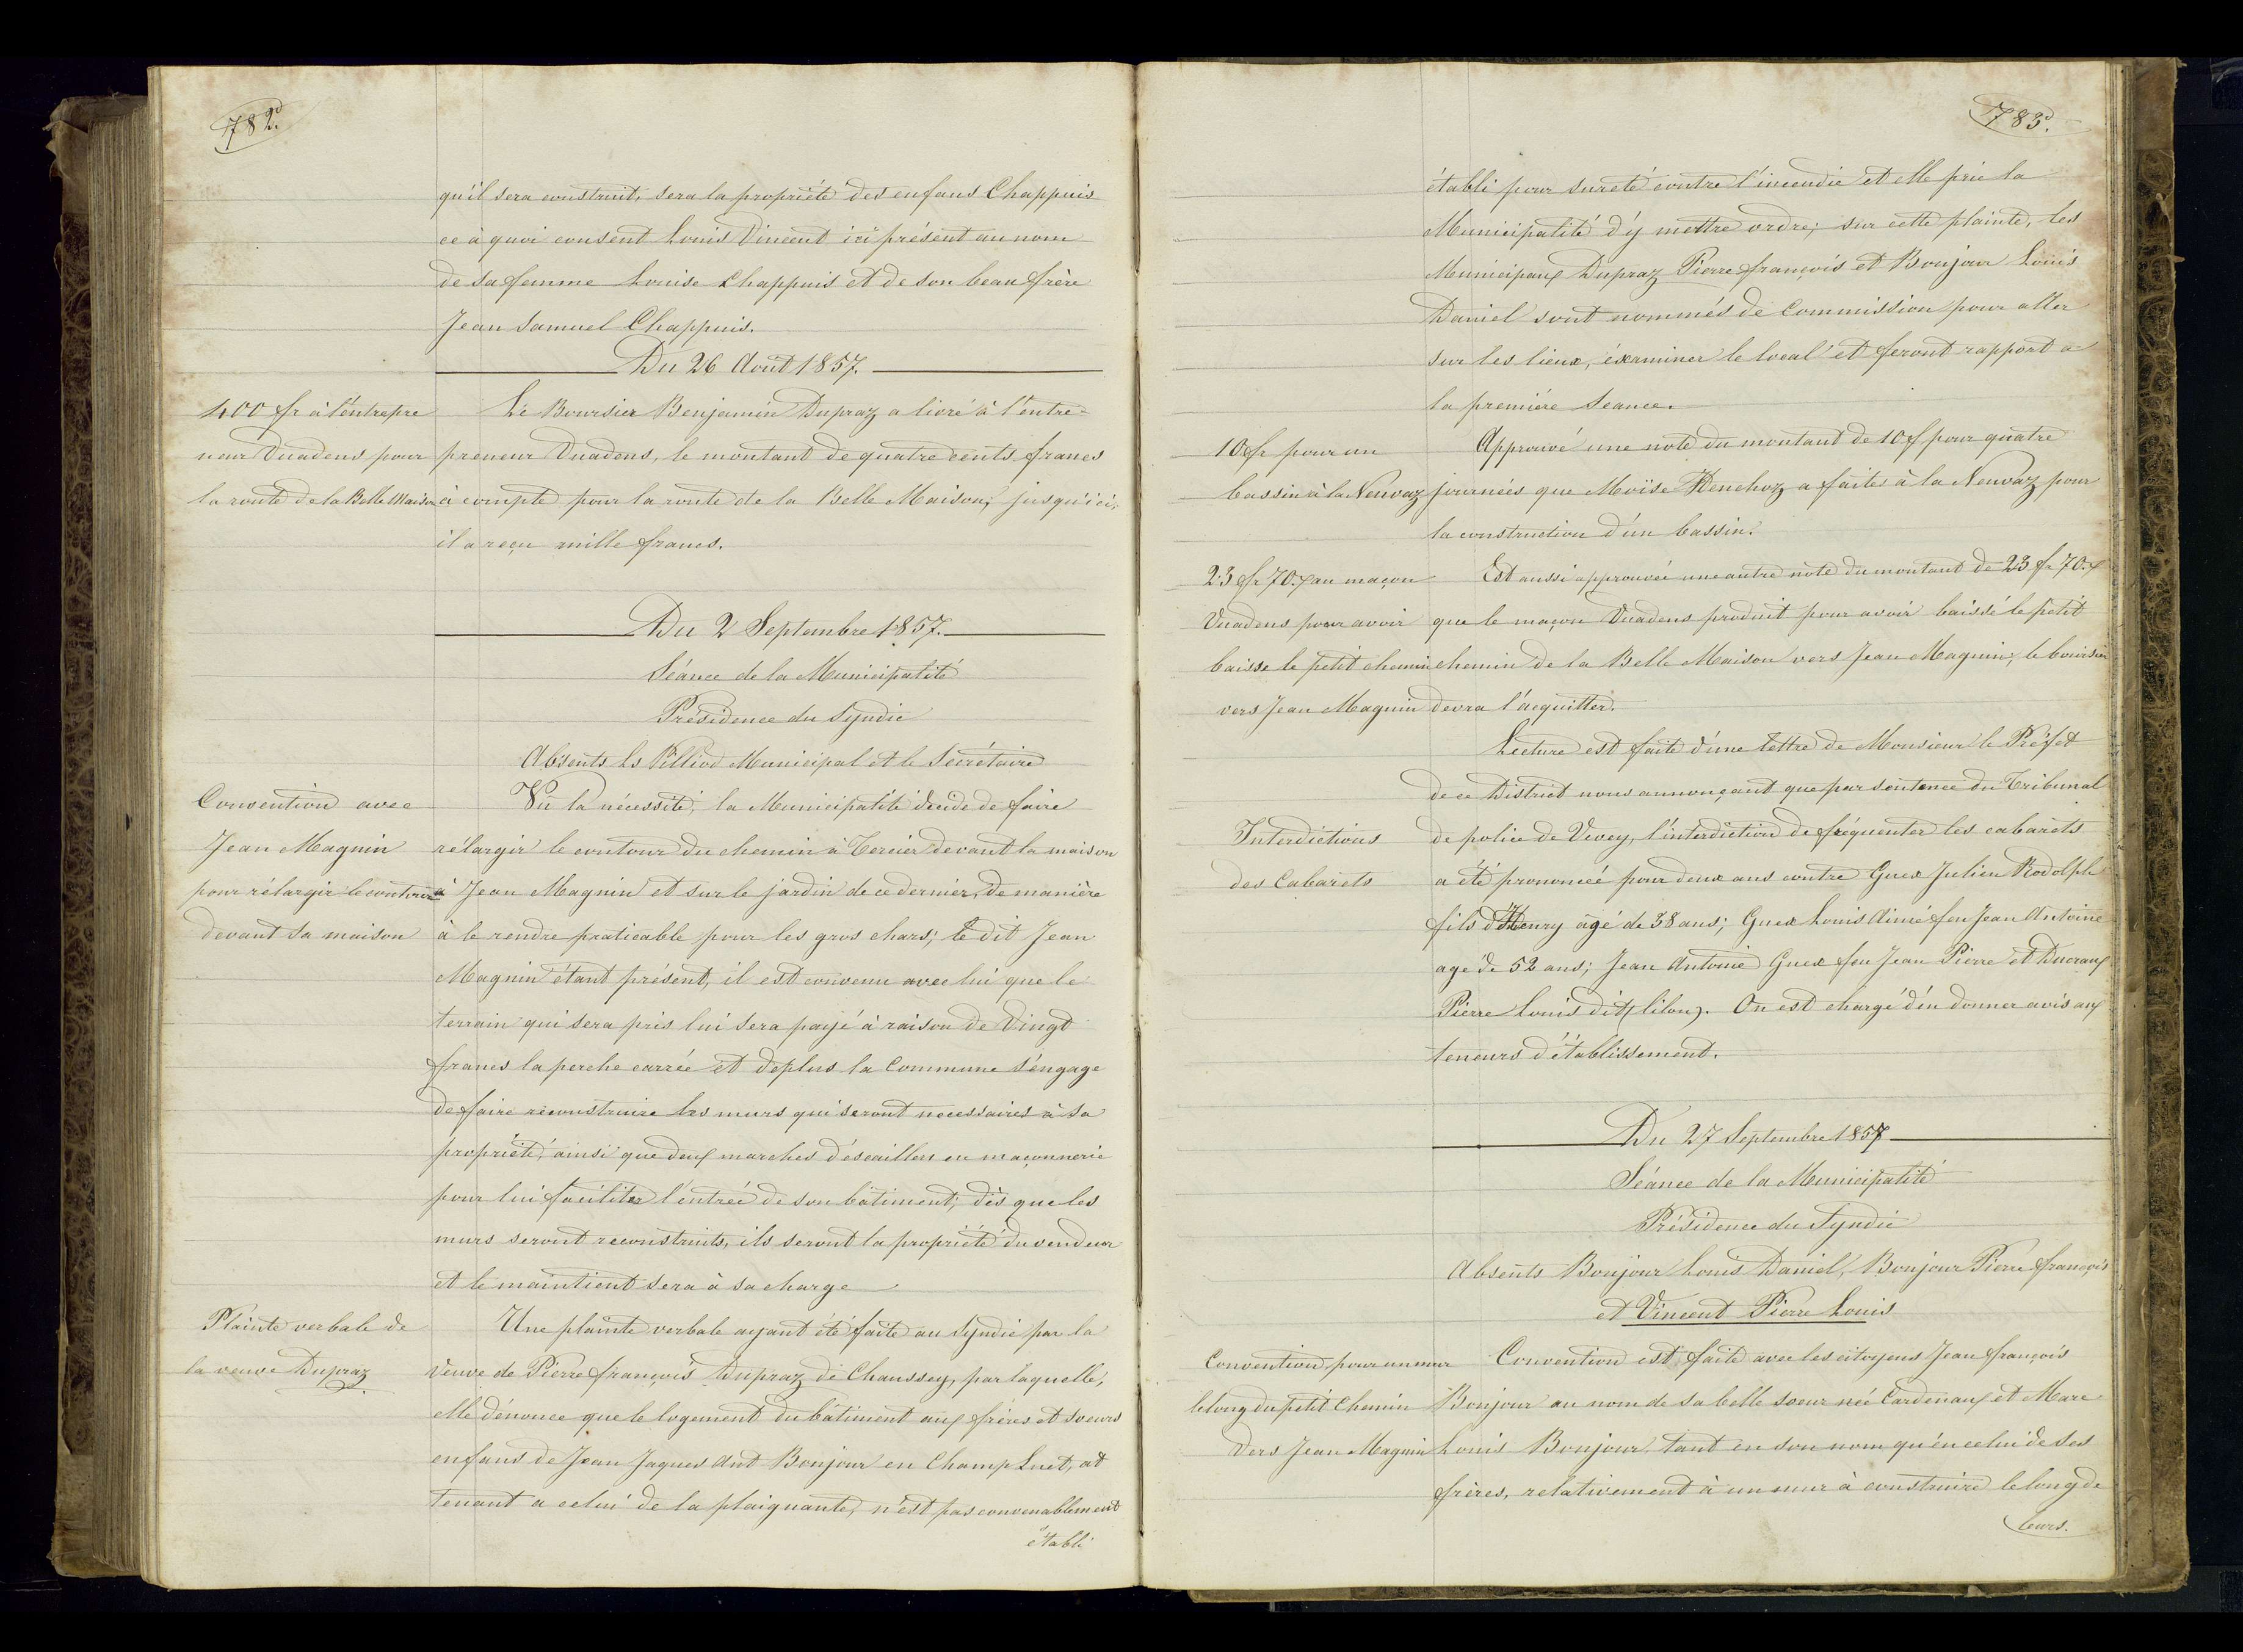 782.
qu'il sera construit, sera la propriété des enfans Chappuis
ce à quoi consent Louis Vincent ici présent au nom
de sa femme Louise Chappuis et de son beau frère
Jean Samuel Chappuis.
Du 26 Août 1857.
400 fr à l'entrepre
neur Vuadens pour
la route de la Belle Maison
Le Boursier Benjamin Dupraz a livré à l'entre-
preneur Vuadens, le montant de quatre cents francs
à compte pour la route de la Belle Maison; jusqu'ici,
il a reçu mille francs.
Du 2 Septembre 1857.
Séance de la Municipalité
Présidence du Syndic
Absents Ls Pilliod Municipal et le Secrétaire
Convention avec
Jean Magnin
pour rélargir le contour
devant sa maison
Vu la nécessité, la Municipalité décide de faire
rélargir le contour du chemin à Tercier devant la maison
à Jean Magnin et sur le jardin de ce dernier, de manière
à le rendre praticable pour les gros chars; le dit Jean
Magnin étant présent, il est convenu avec lui que le
terrain qui sera pris lui sera payé à raison de Vingt
francs la perche carrée et deplus la Commune s'engage
de faire reconstruire les murs qui seront necessaires à sa
propriété, ainsi que deux marches d'escaillers en maçonnerie
pour lui faciliter l'entrée de son bâtiment; dès que les
murs seront reconstruits, ils seront la propriété du vendeur
et le maintient sera à sa charge
Plainte verbale de
la veuve Dupraz
Une plainte verbale ayant été faite au Syndic par la
veuve de Pierre françois Dupraz de Chaussey, par laquelle,
elle dénonce que le logement du bâtiment aux frères et soeurs
enfans de Jean Jaques Ant Bonjour en Champ Luet, at
tenant a celui de la plaignante, n'est pas convenablement
établi
783.
établi pour sureté contre l'incendie et elle prie la
Municipalité d'y mettre ordre; sur cette plainte, les
Municipaux Dupraz Pierre françois et Bonjour Louis
Daniel sont nommés de Commission pour aller
sur les lieux, éxaminer le local et feront rapport a
la première Seance.
10 fr pour un
bassin à la Neuvaz
Approuvé une note du montant de 10 f pour quatre
journées que Moïse Henchoz a faites à la Neuvaz pour
la construction d'un bassin.
23 fr 70 au maçon
Vuadens pour avoir
baisse le petit chemin
vers Jean Magnin
Est aussi approuvée une autre note du montant de 23 fr 70
que le maçon Vuadens produit pour avoir baissé le petit
chemin de la Belle Maison vers Jean Magnin; le boursier
devra l'acquitter.
Interdictions
des Cabarets
Lecture est faite d'une lettre de Monsieur le Préfet
de ce District nous annonçant que par sentence du Tribunal
de police de Vevey, l'interdiction de fréquenter les cabarets
a été prononcée pour deux ans contre Guex Julien Rodolph
fils d'Henry âgé de 38 ans; Guex Louis Aimé feu Jean Antoine
age de 52 ans; Jean Antoine Guex feu Jean Pierre et Ducraux
Pierre Louis dit (lilon). On est chargé d'en donner avis aux
teneurs d'établissement.
Du 27 Septembre 1857
Séance de la Municipalité
Présidence du Syndic
Absents Bonjour Louis Daniel, Bonjour Pierre françois
et Vincent Pierre Louis
Convention pour un mur
le long du petit Chemin
vers Jean Magnin
Convention est faite avec les citoyens Jean françois
Bonjour au nom de sa belle soeur née Cardinaux et Marc
Louis Bonjour tant en son nom qu'en celui de ses
frères, relativement à un mur à construire le long de
leurs.